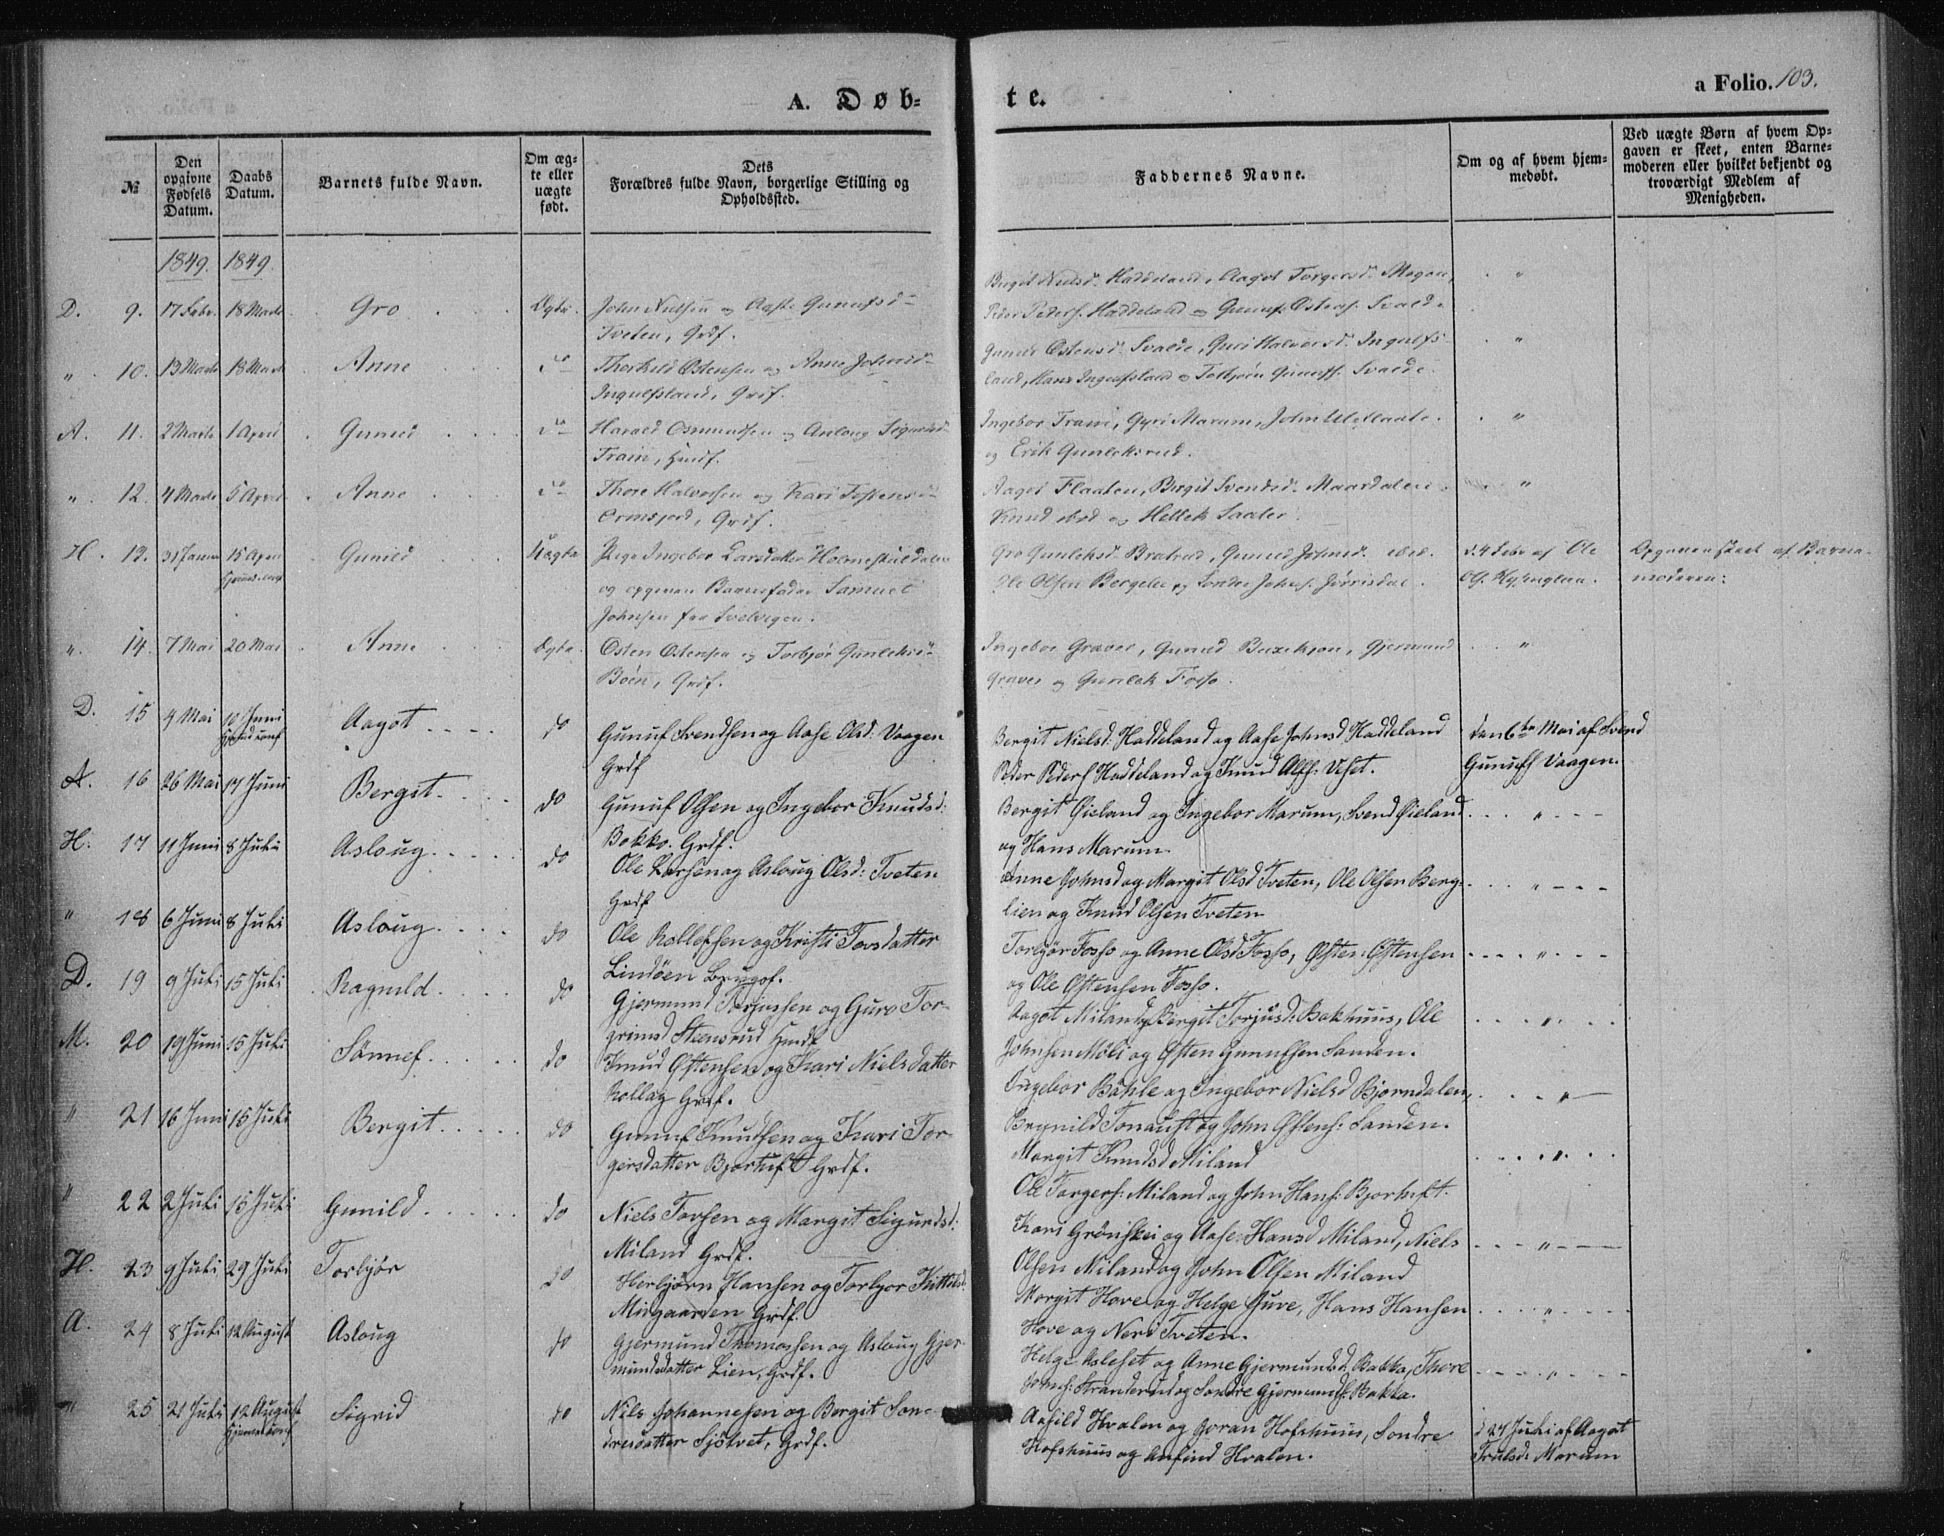 A. Døb-
te.
a Folio. 103.
№
Den opgivne Fødsels Datum.
Daabs Datum.
Barnets fulde Navn.
Om ægte eller uægte født.
Dets Forældres fulde Navn, borgerlige Stilling og Opholdssted.
Faddernes Navne.
Om og af hvem hjemmedøbt.
Ved uægte Børn af hvem Opgaven er skeet, enten Barnemoderen eller hvilket bekjendt og troværdigt Medlem af Menigheden.
1849. 1849.
D. 9. 17 Febr. 18 Marts Gro Ægte.
Tveten, Grdf.
Haddeland, Aagot Torgersd.
Peder Peders. Haddeland og Gunuf
" 10. 13 Marts 18 Marts Anne do
Thorkild Ostensen og Anne Johnsd
Ingulfsland, Grdf.
Svalde, Guri Halvorsd. Ingulfs-
land, Hans Ingulfsland og Torbjörn Svalde.
A. 11. 2 Marts 1 April Gunild do
Harald Osmundsen og Asloug Sigurdsd
Train, Husf.
Ingebor Train, Gyri Marum, John
og Erik Gunleksrud.
" 12. 4 Marts 5 April Anne do
Thore Halvorsen og Kari
Grdf.
Aagot Flaaten, Birgit Svendsd. Maardalen
Knud ibid og Hellek
H. 13. 31 Januar 15 April Gunild Uægte
Pige Ingebor Larsdatter
og opgiven Barnefader Samuel
Johnsen fra Svelvigen.
Gro Gunleksd. Gunild Johnsd. ibid.
Ole Olsen Berglie og Sondre Johns.
d. 4 Febr af Ole
Opgaven skeet af Barne-
moderen:
" 14. 7 Mai 20 Mai Anne Ægte.
Osten Ostensen og Torbjör Gunleksd
Böen, Grdf.
Ingebor Graver, Gunild Gjermund
Graver og Gunlek Fosso.
D. 15 4 Mai 10 Juni Aagot do
Gunuf Svendsen og Aase Olsd: Vaagen
Grdf
Bergit Nielsd: Haddeland og Aase Johnsd Haddeland
Peder Pederss Haddeland og Knud Olss. Veset.
Den 6te Mai af Svend
Gunufs Vaagen.
A. 16 26 Mai 17 Juni Bergit do
Gunuf Olsen og Ingebor Knudsd:
Bokko. Grdf.
Bergit Øieland og Ingebor Marum, Svend Øieland
og Hans Marum.
H. 17 11 Juni 8 Juli Asloug do
Ole Larsen og Asloug Olsd: Tveten
Grdf
Anne Johnsd og Margit Olsd Tveten, Ole Olsen Berg-
lien og Knud Olsen Tveten
" 18 6 Juni 8 Juli Asloug do
Ole Rollefsen og Kristi Tovsdatter
Lindöen Brugsf.
Torbjör Fosso og Anne Olsd Fosso, Østen Østensen
og Ole Østensen Fosso.
D. 19 9 Juli 15 Juli Ragnild do
Gjermund Torjussen og Guro Tor-
grimsd Steensrud Husf
Aagot Miland og Bergit Torjusd: Bakhuus, Ole
Johnsen Möli og Østen Gunufsen Sanden.
M. 20 19 Juni 15 Juli Sönnef do
Knud Østensen og Kari Nielsdatter
Rollag Grdf.
Ingebor Böhle og Ingebor Nielsd Bjorndalen,
Brynild Tonaust og John Østens: Sanden.
" 21 16 Juni 15 Juli Bergit do
Gunuf Knudsen og Kari Tor-
gersdatter Bjortuft Grdf.
Margit Knudsd Miland
Ole Torgers: Miland og John Hans: Bjortuft.
" 22 2 Juli 15 Juli Gunild do
Niels Tovsen og Margit Sigurdsd:
Miland Grdf.
Kari Grönskei og Aase Hansd Miland, Niels
Olsen Miland og John Olsen Miland
H. 23 9 Juli 29 Juli Torbjör do
Herbjörn Hansen og Torbjor Kittilsd:
Midgaarden Grdf.
Margit Hove og Helge Juve, Hans Hansen
Hove og Neri Tveten.
A. 24 8 Juli 12 August Asloug do
Gjermund Thomassen og Asloug Gjer-
mundsdatter Lien, Grdf.
Helge Asleset og Anne Gjermundsd. Bakka, Thore
Johns: Stranderud og Sondre Gjermunds Bakka.
" 25 21 Juli 12 August Sigrid do
Nils Johannesen og Bergit Son-
dresdatter Sjötvet, Grdf.
Aasild Hvalen og Joran Hofshuus, Sondre
Hofshuus og Anfind Hvalen.
d 27 Juli af Aagot
Trulsd: Marum